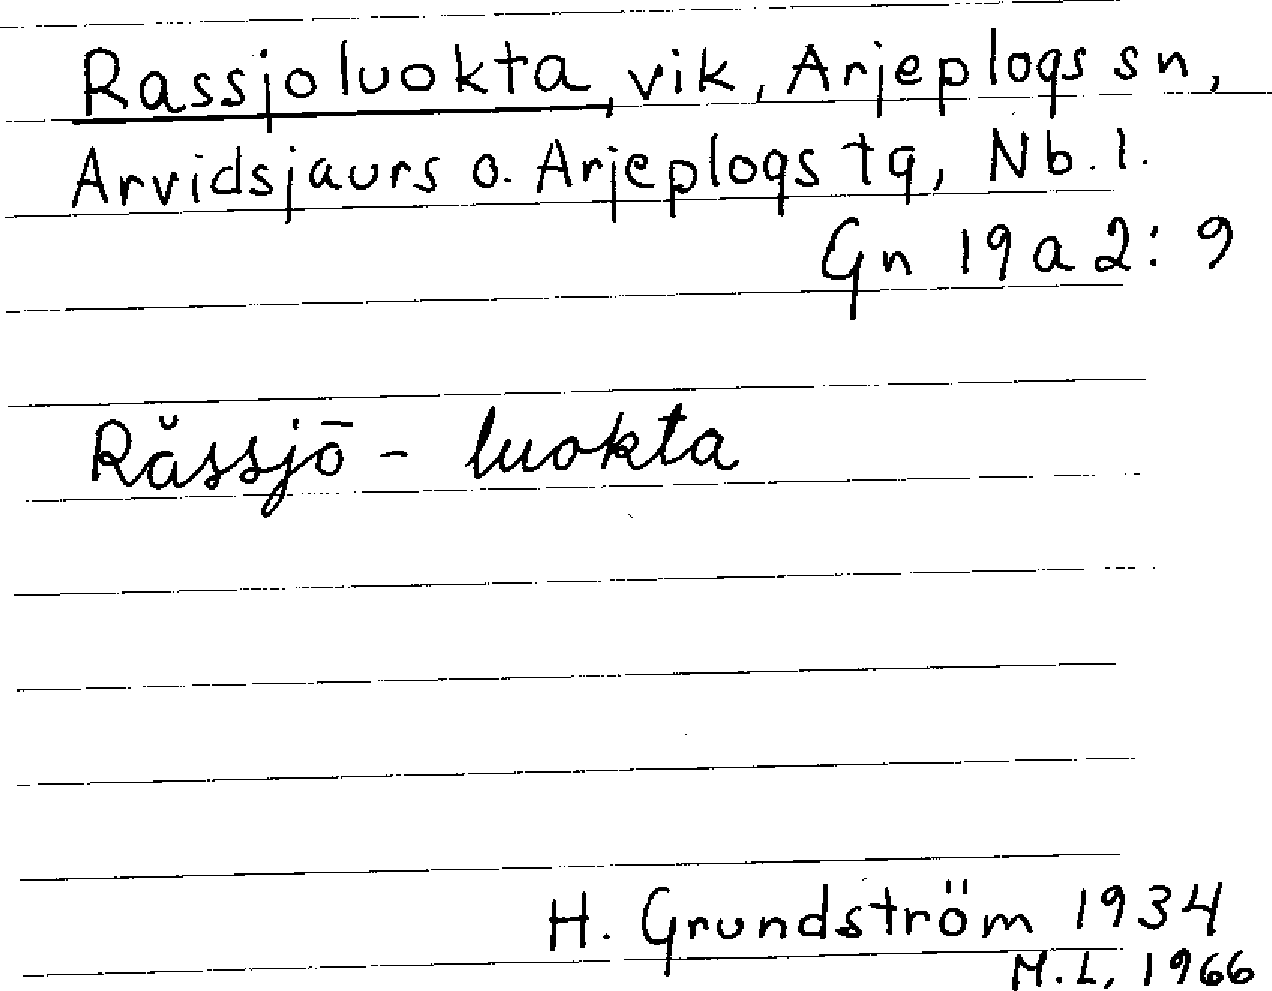 Rassjoluokta, vik, Arjeplogs sn,
Arvidsjaurs o. Arjeplogs tg, Nb.l.
Gn 19a2:9
Răssjō - luokta
H. Grundström 1934
M.L, 1966